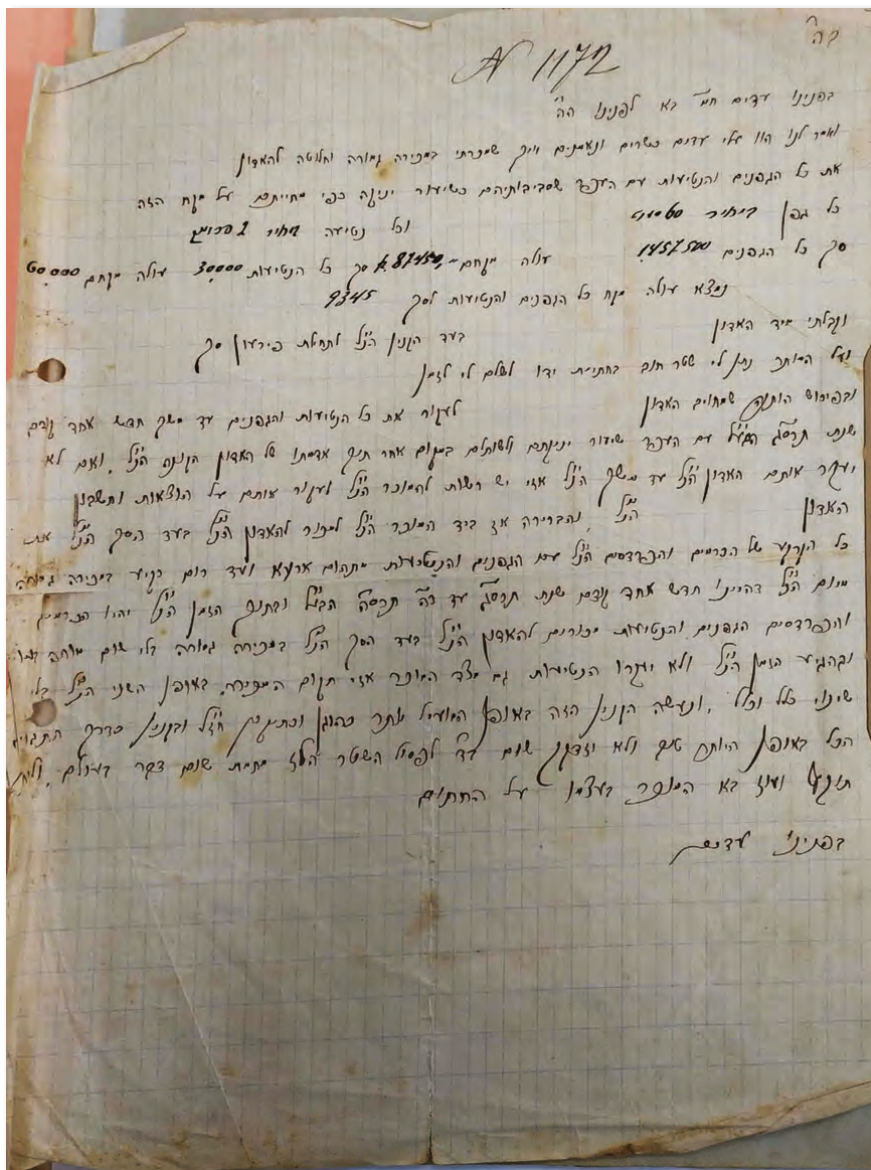 בה"
N 1172
בפנינו עדים חמ"י בא לפנינו הה'
ואמר לנו הוו עלי עדים כשרים ונאמנים איך שמכרתי במכירה גמורה וחלוטה להאדון
את כל הגפנים והנטיעות עם העפר שסביבותיהם כשיעור יניקה כפי מחייתם על מקח הזה
כל גפן במחיר 60 וכל נטיעה במחיר 2 פרוט
סך כל הגפנים 1,457,500 עולה מקחם 87450 סך כל הנטיעות 30,000 עולה מקחם 60,000
נמצא עולה מקח כל הגפנים והנטיעות לסך 9345
וקבלתי מיד האדון בעד הקנין הנ"ל לתחלת פירעון סך
ועל המותר נתן לי שטר חוב בחתימת ידו לשלם לי לזמן
ובפירוש הותנה שמחויב האדון לעקור את כל הנטיעות והגפנים עד משך חדש אחד קודם
שנת תרס"ג עם העפר שיעור יניקתם ולשותלם במקום אחר תוך אדמתו של האדון הקונה הנ"ל, ואם לא
יעקור אותם האדון הנ"ל עד משך הנ"ל אזי יש רשות להמוכר הנ"ל לעקור אותם על הוצאות וחשבון
האדון הנ"ל, והברירה אז ביד המוכר הנ"ל למכור להאדון הנ"ל בעד הסך הנ"ל את
כל הקרקע של הכרמים והפרדסים הנ"ל עם הגפנים והנטיעות מתהום ארעא ועד רום רקיע במכירה גמורה
מיום הנ"ל דהיינו חדש אחד קודם שנת תרס"ג עד ר"ה תרס"ה ובתוך הזמן הנ"ל יהיו הכרמים
והפרדסים הגפנים והנטיעות מכורים להאדון הנ"ל בעד הסך הנ"ל במכירה גמורה בלי שום
ובהגיע הזמן הנ"ל ולא יעקרו הנטיעות גם מצד המוכר אזי תקום המכירה באופן השני הנ"ל בלי
שינוי כלל וכלל, ונעשה הקנין הזה באופן המועיל יותר כהוגן וכתיקון חז"ל ובקנין כדרך
הכל באופן היותר טוב ולא יזדקק שום ע"ד לפסול השטר הלז מחמת שום דבר בעולם,
תוקף ועוז בא המוכר בעצמו על החתום
בפנינו עדים